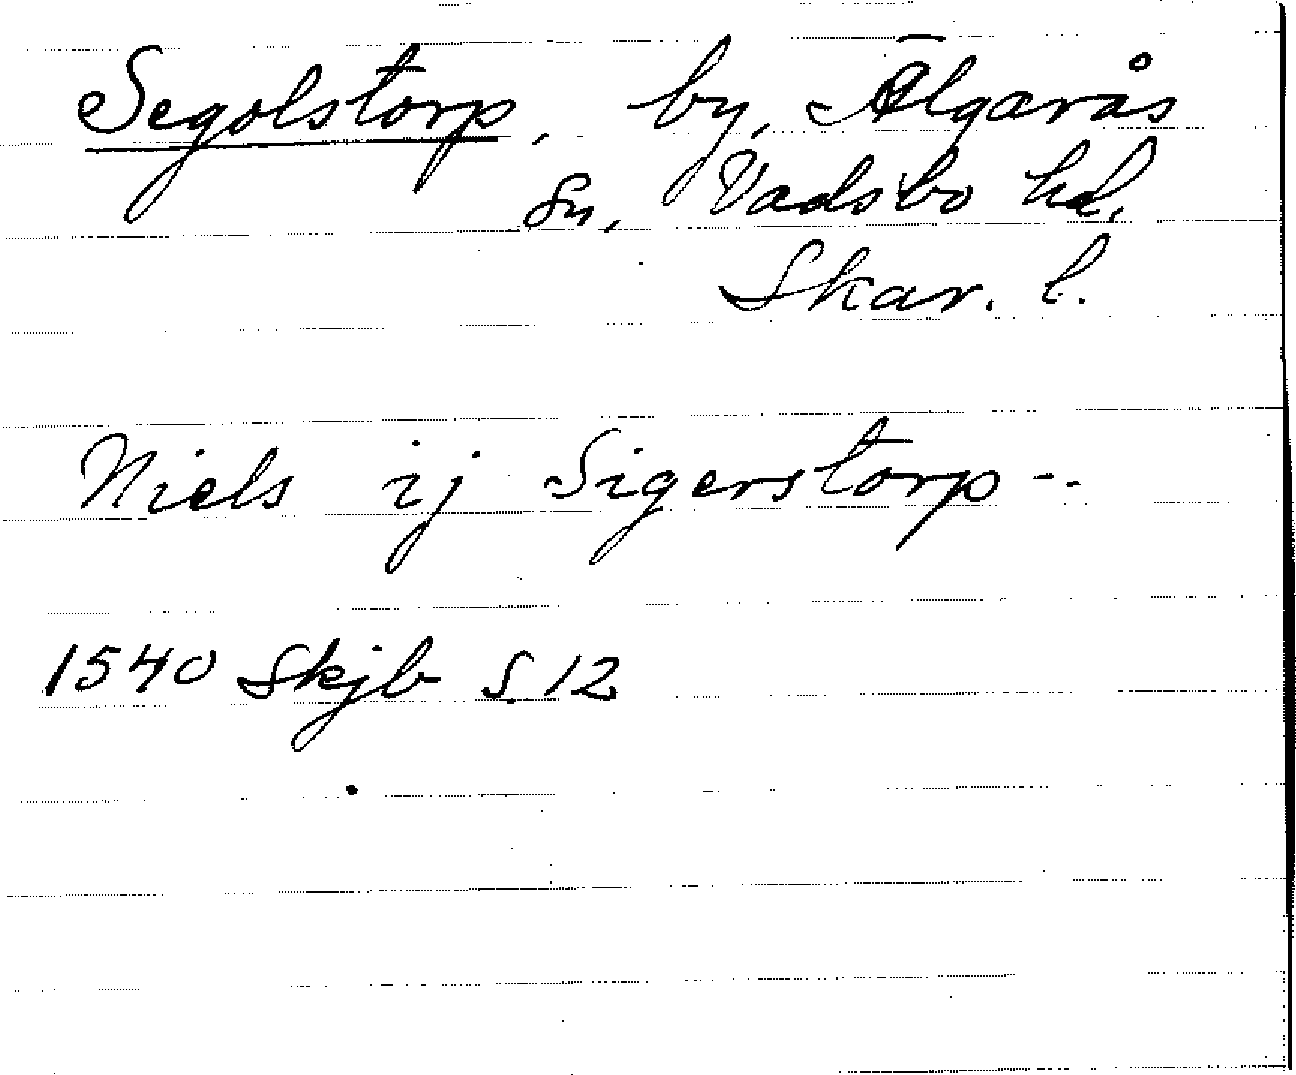 Segolstorp, by, Älgarås
sn, Vadsbo hd.
Skar. l.
Niels ij Sigerstorp --
1540 Skjb S 12